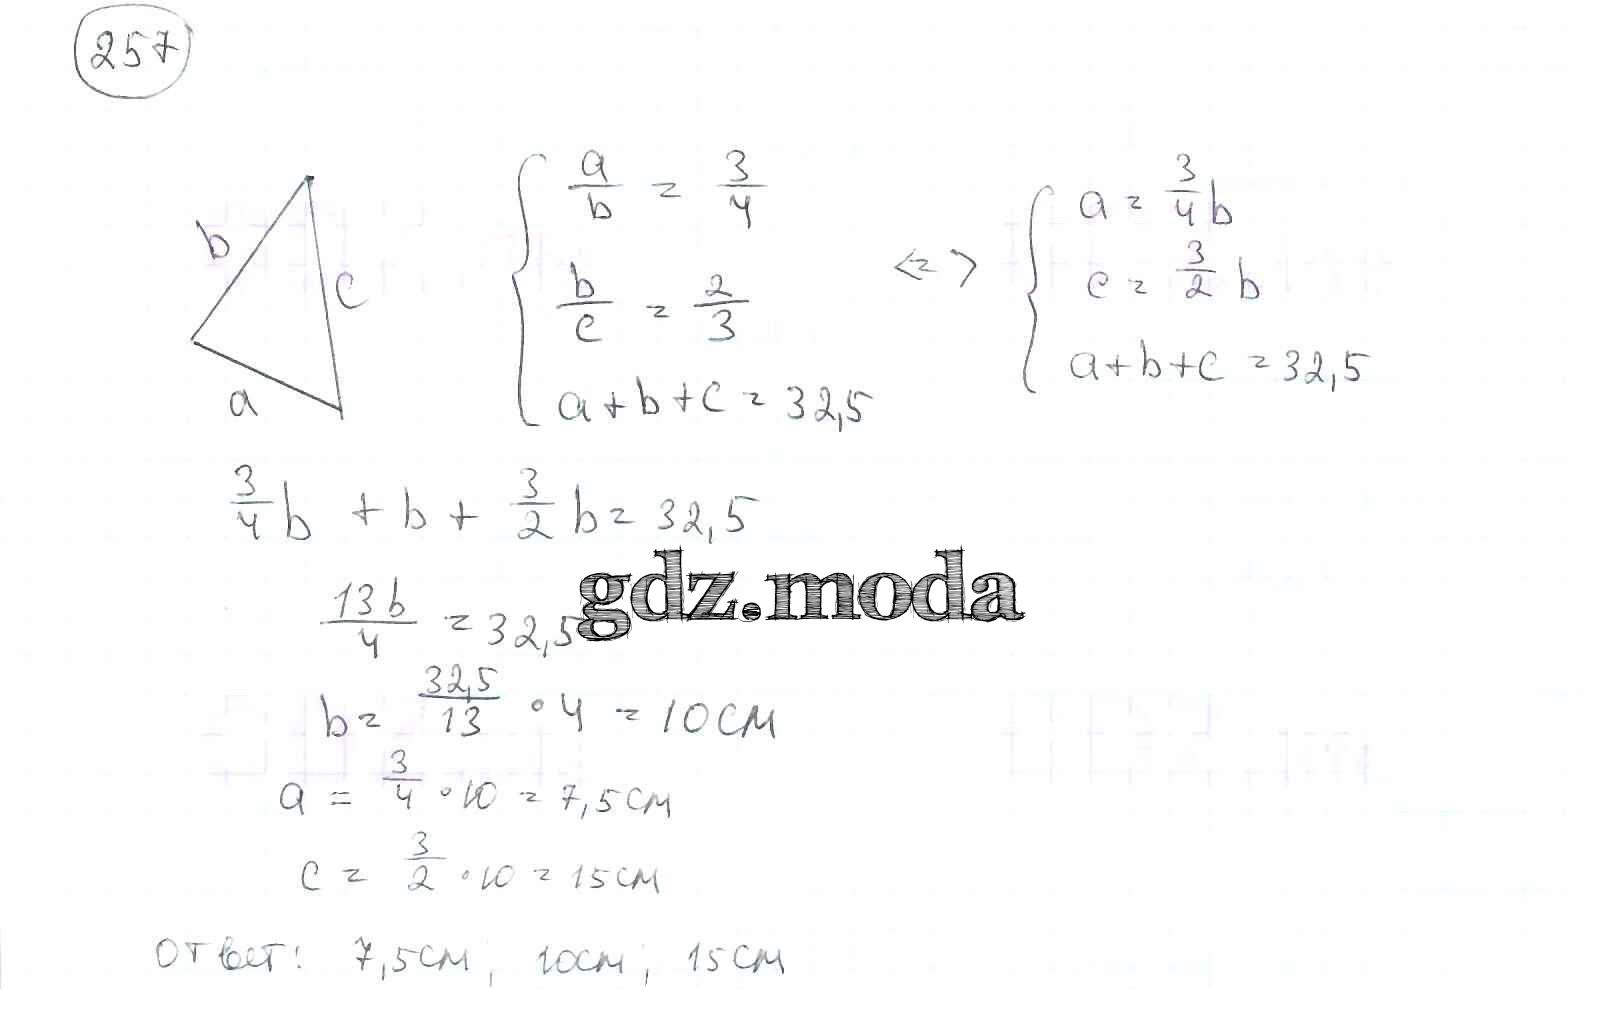 257
b
c
a
a/b = 3/4
b/c = 2/3
a+b+c = 32,5
<=>
a = 3/4 b
c = 3/2 b
a+b+c = 32,5
3/4 b + b + 3/2 b = 32,5
13b/4 = 32,5
b = 32,5/13 · 4 = 10 см
a = 3/4 · 10 = 7,5 см
c = 3/2 · 10 = 15 см
Ответ: 7,5 см, 10 см, 15 см
gdz.moda